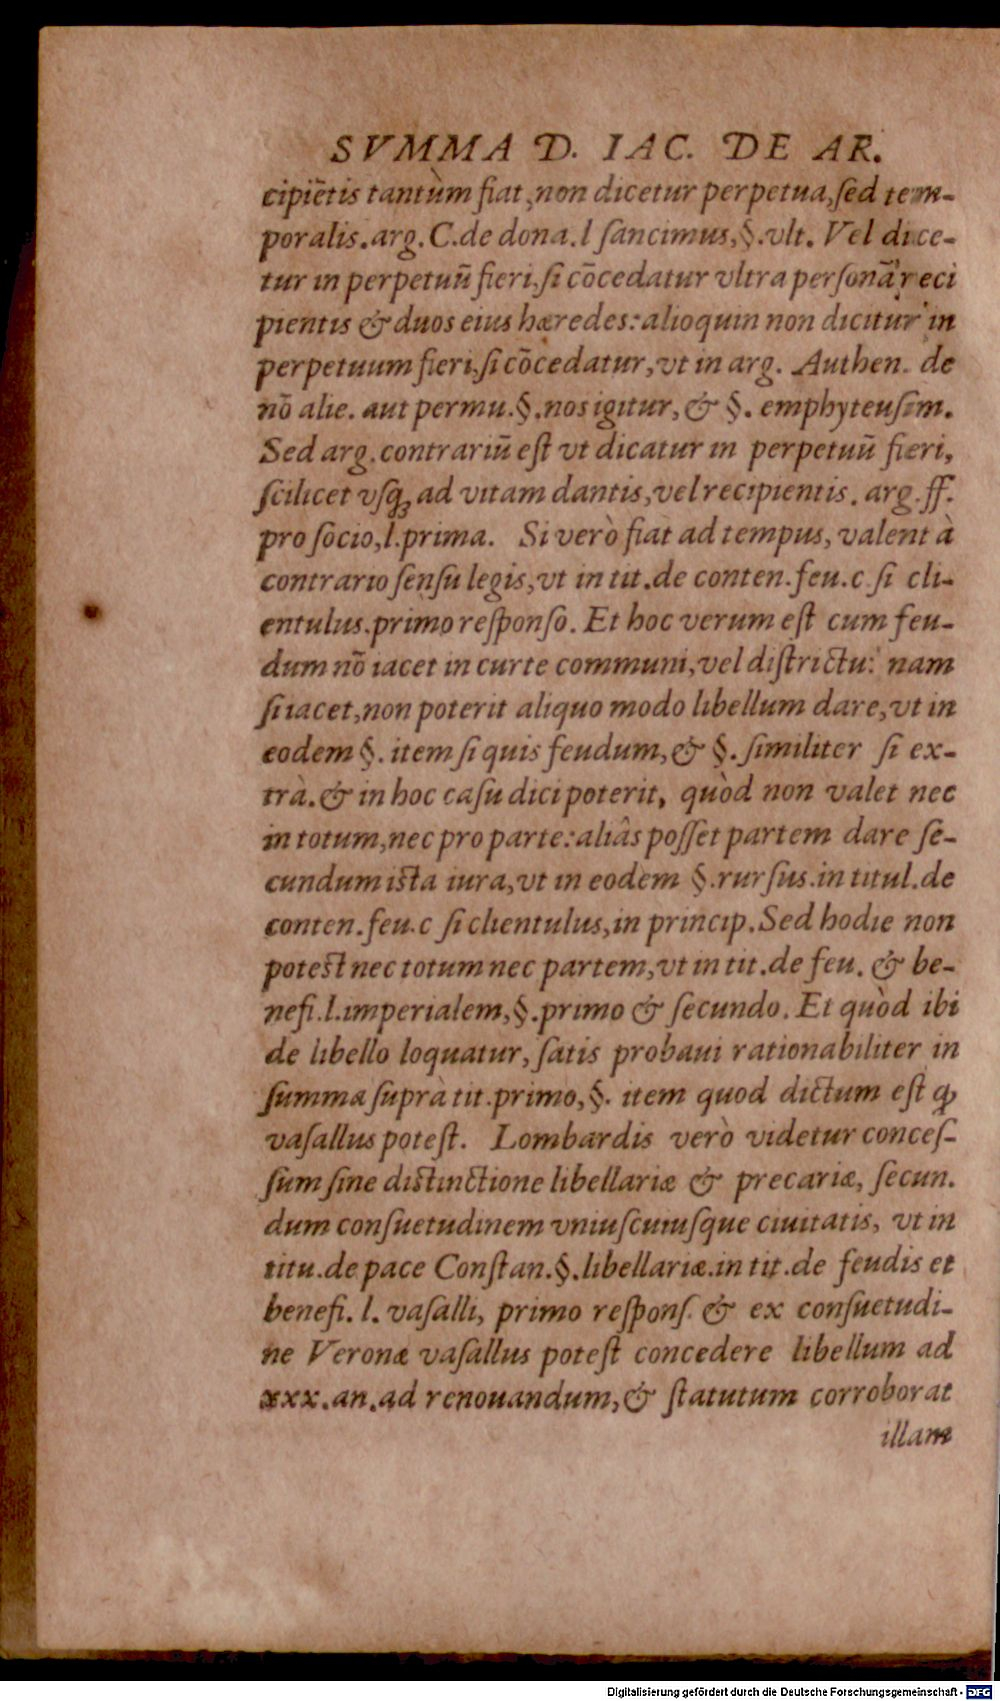 SVMMA D. IAC. DE AR.
cipiẽtis tantùm fiat, non dicetur perpetua, ſed tem-
poralis. arg. C. de dona. l ſancimus, §. vlt. Vel dice-
tur in perpetuũ fieri, ſi cõcedatur vltra perſonã reci
pientis & duos eius hæredes: alioquin non dicitur in
perpetuum fieri, ſi cõcedatur, vt in arg. Authen. de
nõ alie. aut permu. §. nos igitur, & §. emphyteuſim.
Sed arg. contrariũ eſt vt dicatur in perpetuũ fieri,
ſcilicet vſq; ad vitam dantis, vel recipientis. arg. ff.
pro ſocio, l. prima. Si verò fiat ad tempus, valent à
contrario ſenſu legis, vt in tit. de conten. feu. c. ſi cli-
entulus. primo reſponſo. Et hoc verum eſt cum feu-
dum nõ iacet in curte communi, vel diſtrictu: nam
ſi iacet, non poterit aliquo modo libellum dare, vt in
eodem §. item ſi quis feudum, & §. ſimiliter ſi ex-
trà. & in hoc caſu dici poterit, quòd non valet nec
in totum, nec pro parte: aliâs poſſet partem dare ſe-
cundum iſta iura, vt in eodem §. rurſus. in titul. de
conten. feu. c ſi clientulus, in princip. Sed hodie non
poteſt nec totum nec partem, vt in tit. de feu. & be-
nefi. l. imperialem, §. primo & ſecundo. Et quòd ibi
de libello loquatur, ſatis probaui rationabiliter in
ſumma ſuprà tit. primo, §. item quod dictum eſt ꝙ
vaſallus poteſt. Lombardis verò videtur conceſ-
ſum ſine diſtinctione libellariæ & precariæ, ſecun.
dum conſuetudinem vniuſcuiuſque ciuitatis, vt in
titu. de pace Conſtan. §. libellariæ. in tit. de feudis et
benefi. l. vaſalli, primo reſponſ. & ex conſuetudi-
ne Veronæ vaſallus poteſt concedere libellum ad
xxx. an. ad renouandum, & ſtatutum corroborat
illam
Digitalisierung gefördert durch die Deutsche Forschungsgemeinschaft - DFG